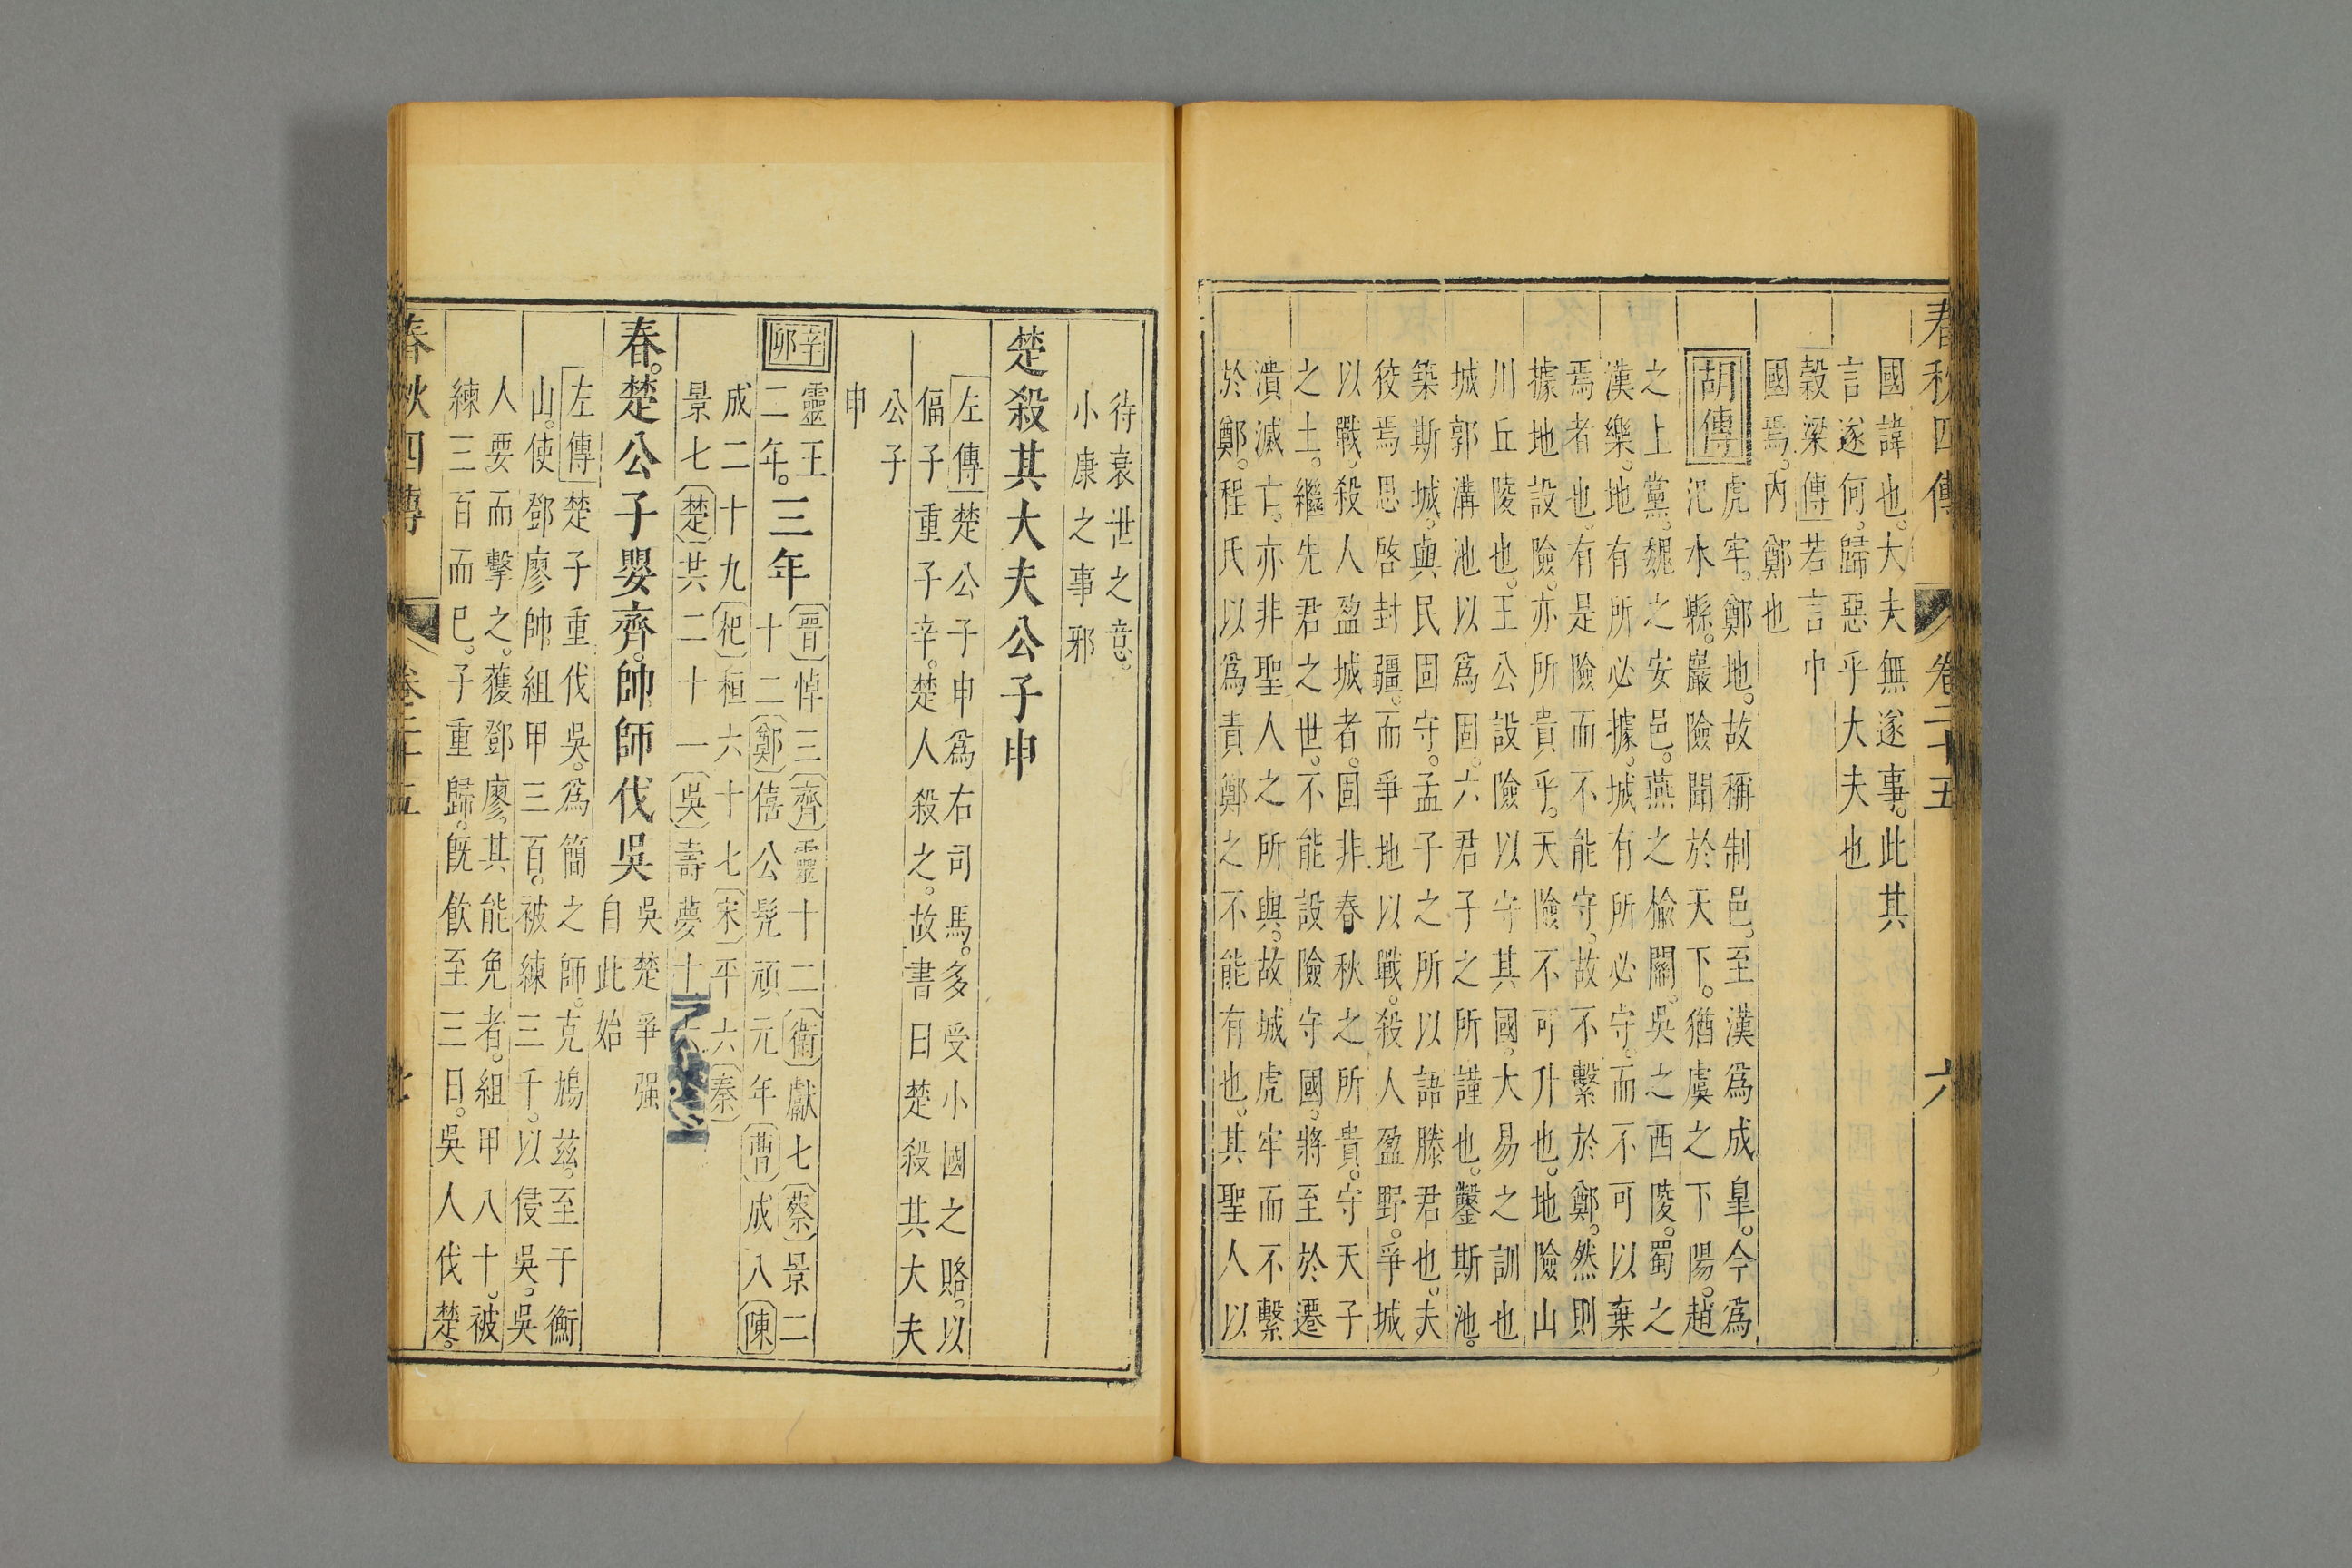 春秋四傳 卷二十五 六
國諱也。大夫無遂事。此其
言遂何。歸惡乎大夫也
穀梁傳若言中
國焉。內鄭也
胡傳
虎牢。鄭地。故稱制邑。至漢爲成皐。今爲
汜水縣。巖險聞於天下。猶虞之下陽。趙
之上黨。魏之安邑。燕之榆關。吳之西陵。蜀之
漢樂。地有所必據。城有所必守。而不可以棄
焉者也。有是險而不能守。故不繫於鄭。然則
據地設險。亦所貴乎。天險不可升也。地險山
川丘陵也。王公設險以守其國。大易之訓也
城郭溝池以爲固。六君子之所謹也。鑿斯池。
築斯城。與民固守。孟子之所以語滕君也。夫
狡焉思啓封疆。而爭地以戰。殺人盈野。爭城
以戰。殺人盈城者。固非春秋之所貴。守天子
之土。繼先君之世。不能設險守國。將至於遷
潰滅亡。亦非聖人之所與。故城虎牢而不繫
於鄭。程氏以爲責鄭之不能有也。其聖人以
待衰世之意。
小康之事邪
楚殺其大夫公子申
左傳楚公子申爲右司馬。多受小國之賂。以
偪子重子辛。楚人殺之。故書曰楚殺其大夫
公子
申
辛卯
靈王
二年。
三年
晉悼三齊靈十二衞獻七蔡景二
十二鄭僖公髠頑元年曹成八陳
成二十九杞桓六十七宋平六秦
景七楚共二十一吳壽夢十
春。楚公子嬰齊。帥師伐吳
吳楚爭强
自此始
左傳楚子重伐吳。爲簡之師。克鳩茲。至于衡
山。使鄧廖帥組甲三百。被練三千。以侵吳。吳
人要而擊之。獲鄧廖。其能免者。組甲八十。被
練三百而已。子重歸。旣飲至三日。吳人伐楚。
春秋四傳 卷二十五 七